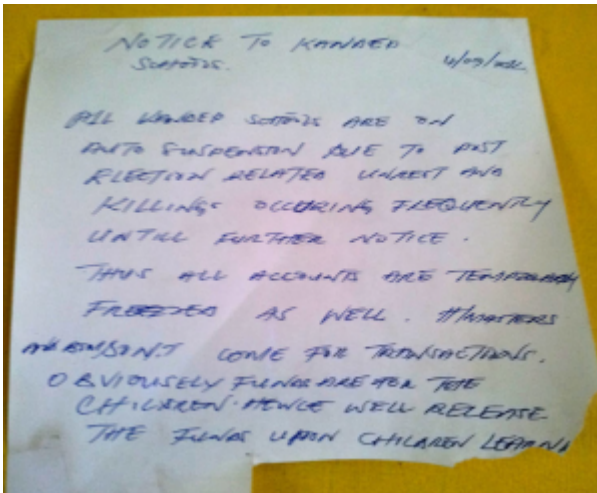 NOTICE TO KANDEP
SCHOOLS. 4/09/2022
ALL KANDEP SCHOOLS ARE ON
AUTO SUSPENSION DUE TO POST
ELECTION RELATED UNREST AND
KILLINGS OCCURING FREQUENTLY
UNTILL FURTHER NOTICE.
THUS ALL ACCOUNTS ARE TEMPORARY
FREEZED AS WELL. H/MASTERS
DON'T COME FOR TRANSACTIONS.
OBVIOUSELY FUNDS ARE FOR THE
CHILDREN. HENCE WELL RELEASE
THE FUNDS UPON CHILDREN LEARNING